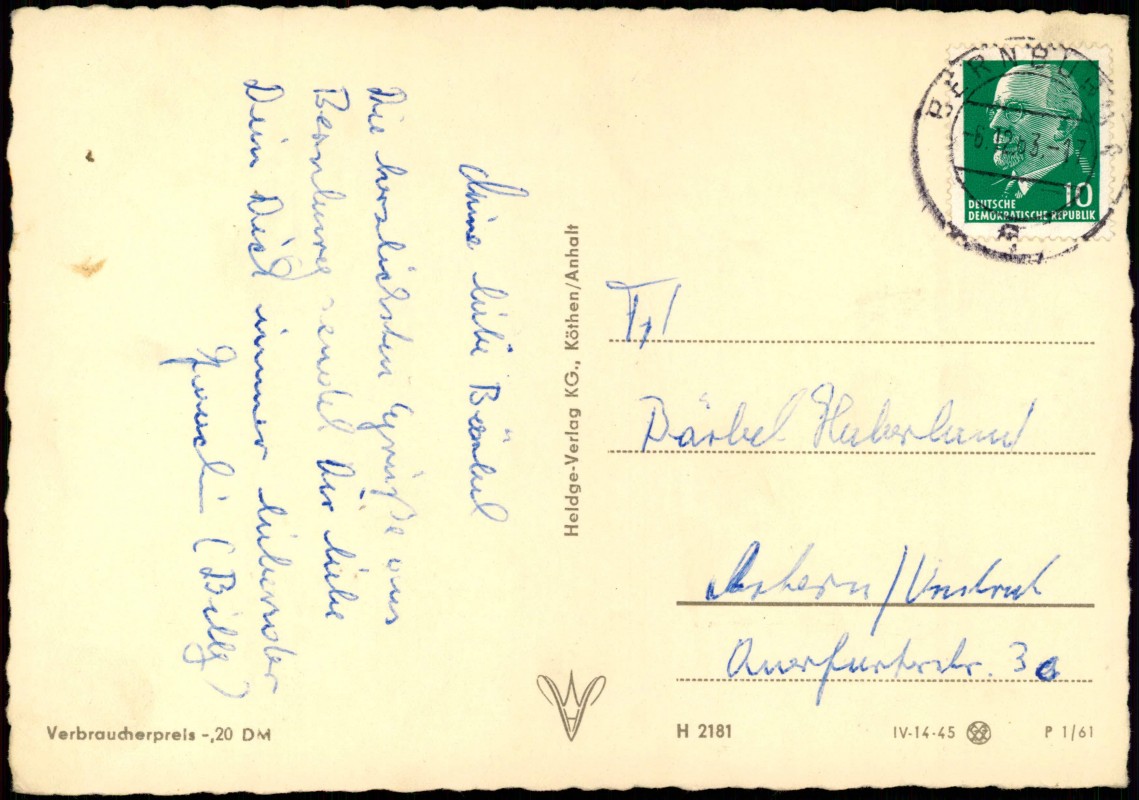 Meine liebe Bärbel
Die herzlichsten Grüße aus
Bernburg sendet Dir liebe
Dein Dich immer liebender
(Billy)
Heldge-Verlag KG., Köthen/Anhalt
BERNBURG
-6.12.63.-17
10
DEUTSCHE
DEMOKRATISCHE REPUBLIK
Frl
Bärbel Haberland
Artern/Unstrut
Querfurterstr. 3a
Verbraucherpreis -,20 DM
H 2181
IV-14-45
P 1/61